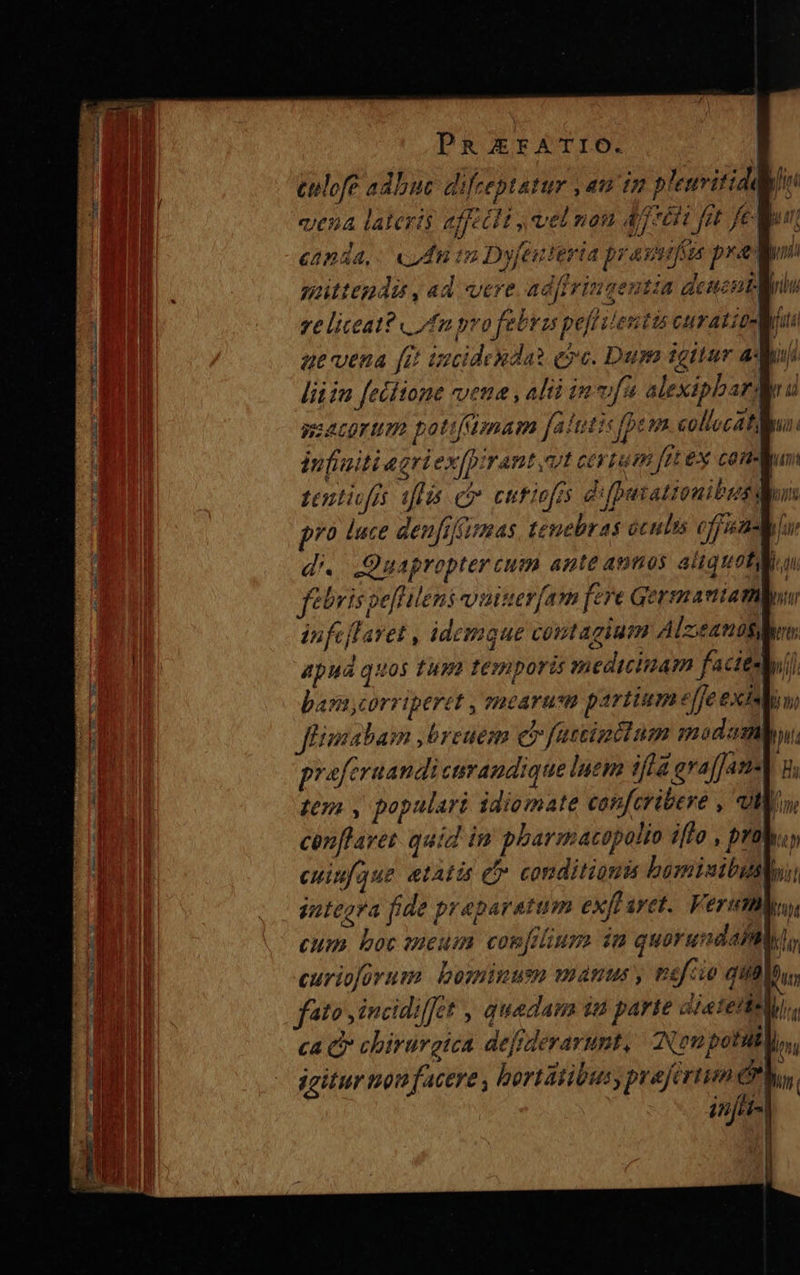 PRÆFATIO.
culosè adhuc disceptatur, an in pleuritide
vena lateris affecti, vel non affecti sit se-
canda. An in Dysenteria præmissis præ-
mittendis, ad vere adstringentia deueni-
re liceat? An pro febris pestilentis curatio-
ne vena sit incidenda? &c. Dum igitur a-
lii in sectione venæ, alii in vsu alexiphar-
macorum potissimam salutis spem collocāt,
infiniti ægri exspirant, vt certum sit ex con-
tentiosis istis & curiosis disputationibus
pro luce densissimas tenebras oculis offun-
di. Quapropter cum ante annos aliquot
febris pestilens vniuersam fere Germaniam
infestaret, idemque contagium Alzeanos,
apud quos tum temporis medicinam facie-
bam, corriperet, mearum partium esse exi-
stimabam, breuem & succinctum modum
præseruandi curandique luem istā grassan-
tem, populari idiomate conscribere, vt
constaret quid in pharmacopolio isto, pro
cuiusque ætatis & conditionis hominibus
integra fide præparatum exstaret. Verum
cum hoc meum consilium in quorundam
curiosorum hominum manus, nescio quo
fato, incidisset, quædam in parte diæteti-
ca & chirurgica desiderarunt. Non potui
igitur non facere, hortātibus, præsertim &
insti-